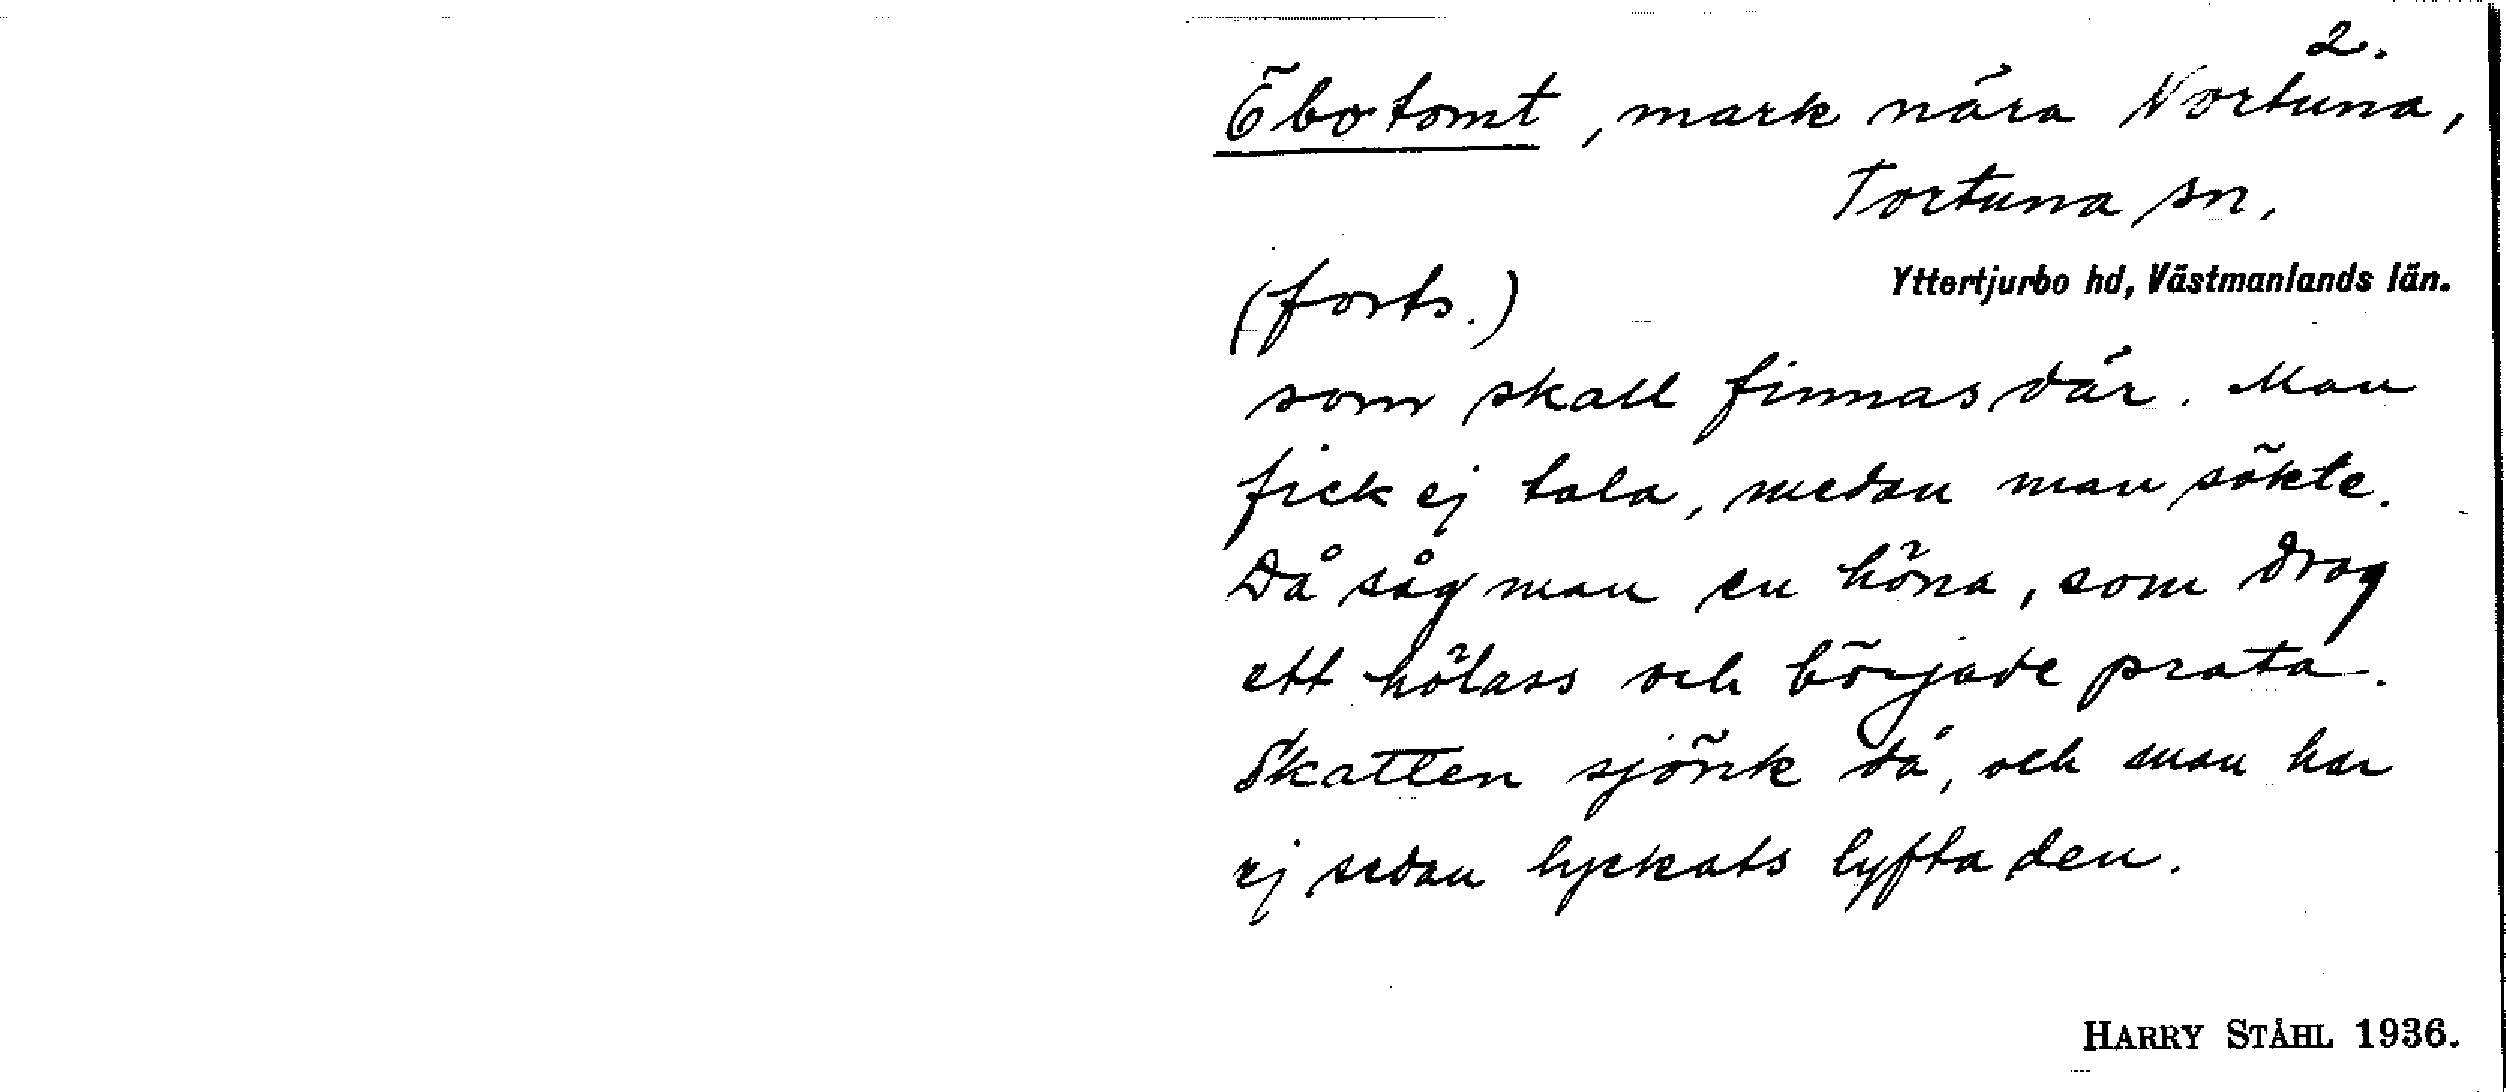 2.
Öbotomt, mark nära Nortuna,
Tortuna sn.
Yttertjurbo hd, Västmanlands län.
(forts.)
som skall finnas där. Man
fick ej tala, medan man sökte.
Då såg man en höna, som drog
ett hölass och började prata.
Skatten sjönk då, och man har
ej sedan lyckats lyfta den.
HARRY STÅHL 1936.